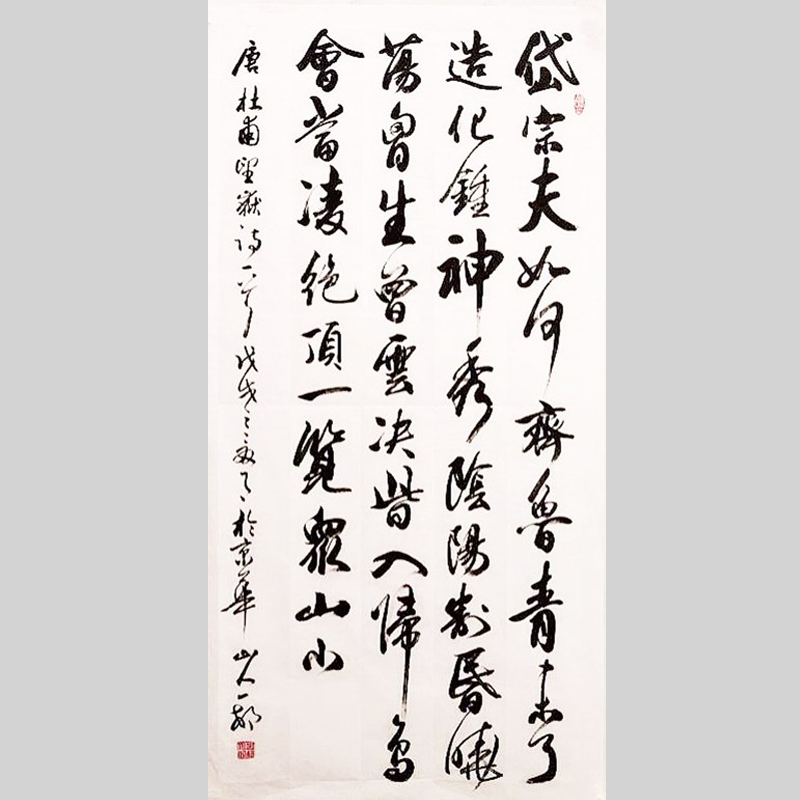 岱宗夫如何齊魯青未了
造化鍾神秀陰陽割昏曉
蕩胷生曾雲决眥入歸鳥
會當凌絶頂一覽眾山小
唐杜甫望嶽詩一首戊戌之夏月於京華山人